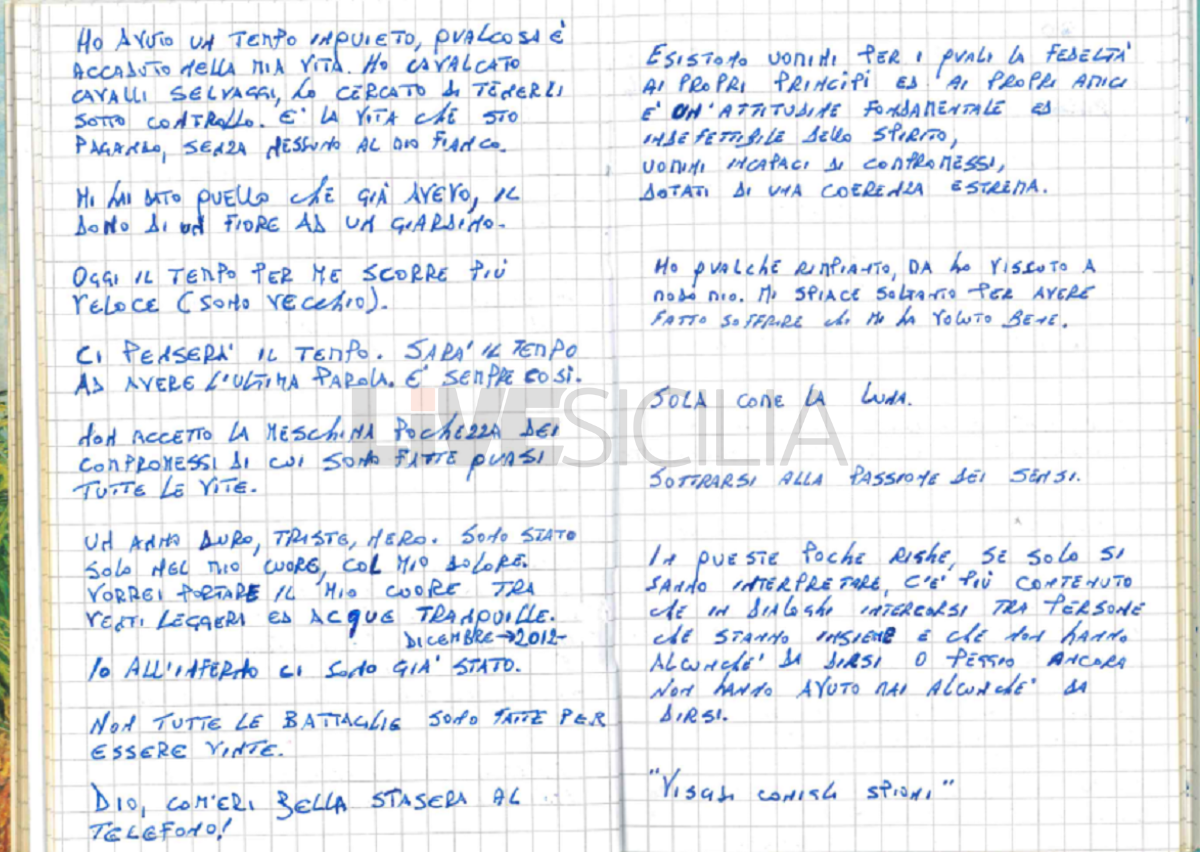 HO AVUTO UN TEMPO INQUIETO, QUALCOSA È
ACCADUTO NELLA MIA VITA. HO CAVALCATO
CAVALLI SELVAGGI, HO CERCATO DI TENERLI
SOTTO CONTROLLO. E' LA VITA CHE STO
PAGANDO, SENZA NESSUNO AL MIO FIANCO.
MI HAI DATO QUELLO CHE GIÀ AVEVO, IL
DONO DI UN FIORE AD UN GIARDINO.
OGGI IL TEMPO PER ME SCORRE PIÙ
VELOCE (SONO VECCHIO).
CI PENSERA' IL TEMPO. SARA' IL TEMPO
AD AVERE L'ULTIMA PAROLA. E' SEMPRE COSÌ.
NON ACCETTO LA MESCHINA POCHEZZA DEI
COMPROMESSI DI CUI SONO FATTE QUASI
TUTTE LE VITE.
UN ANNO DURO, TRISTE, NERO. SONO STATO
SOLO NEL MIO CUORE, COL MIO DOLORE.
VORREI PORTARE IL MIO CUORE TRA
VENTI LEGGERI ED ACQUE TRANQUILLE.
DICEMBRE → 2012-
IO ALL'INFERNO CI SONO GIA' STATO.
NON TUTTE LE BATTAGLIE SONO FATTE PER
ESSERE VINTE.
DIO, COM'ERI BELLA STASERA AL
TELEFONO!
ESISTONO UOMINI PER I QUALI LA FEDELTÀ
AI PROPRI PRINCIPI ED AI PROPRI AMICI
E' UN'ATTITUDINE FONDAMENTALE ED
INDEFETTIBILE DELLO SPIRITO,
UOMINI INCAPACI DI COMPROMESSI,
DOTATI DI UNA COERENZA ESTREMA.
HO QUALCHE RIMPIANTO, DA HO VISSUTO A
MODO MIO. MI SPIACE SOLTANTO PER AVERE
FATTO SOFFRIRE CHI MI HA VOLUTO BENE.
SOLA COME LA LUNA.
LIVESICILIA
SOTTRARSI ALLA PASSIONE DEI SENSI.
IN QUESTE POCHE RIGHE, SE SOLO SI
SANNO INTERPRETARE, C'E' PIÙ CONTENUTO
CHE IN DIALOGHI INTERCORSI TRA PERSONE
CHE STANNO INSIEME E CHE NON HANNO
ALCUNCHE' DA DIRSI O PEGGIO ANCORA
NON HANNO AVUTO MAI ALCUNCHE' DA
DIRSI.
"VISCIDI CONIGLI SPIONI"